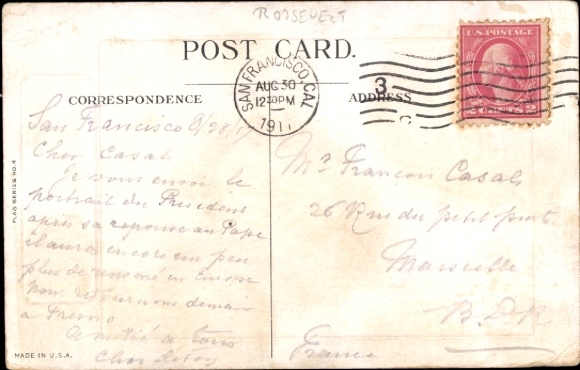 ROOSEVELT
POST CARD.
SAN FRANCISCO, CAL
AUG 30
12 30 PM
1917
3
U.S. POSTAGE
CORRESPONDENCE
ADDRESS
San Francisco 8/28/17
Cher Casal
Je vous envoi le
portrait du President
après sa reponse au Pape
il aura encore un peu
plus de renomé en europe
Nous retournons demain
a Fresno
Amitié a tous
Mr Francois Casals
26 Rue du petit puits
Marseille
B.D.R.
France
FLAG SERIES NO. 4
MADE IN U.S.A.